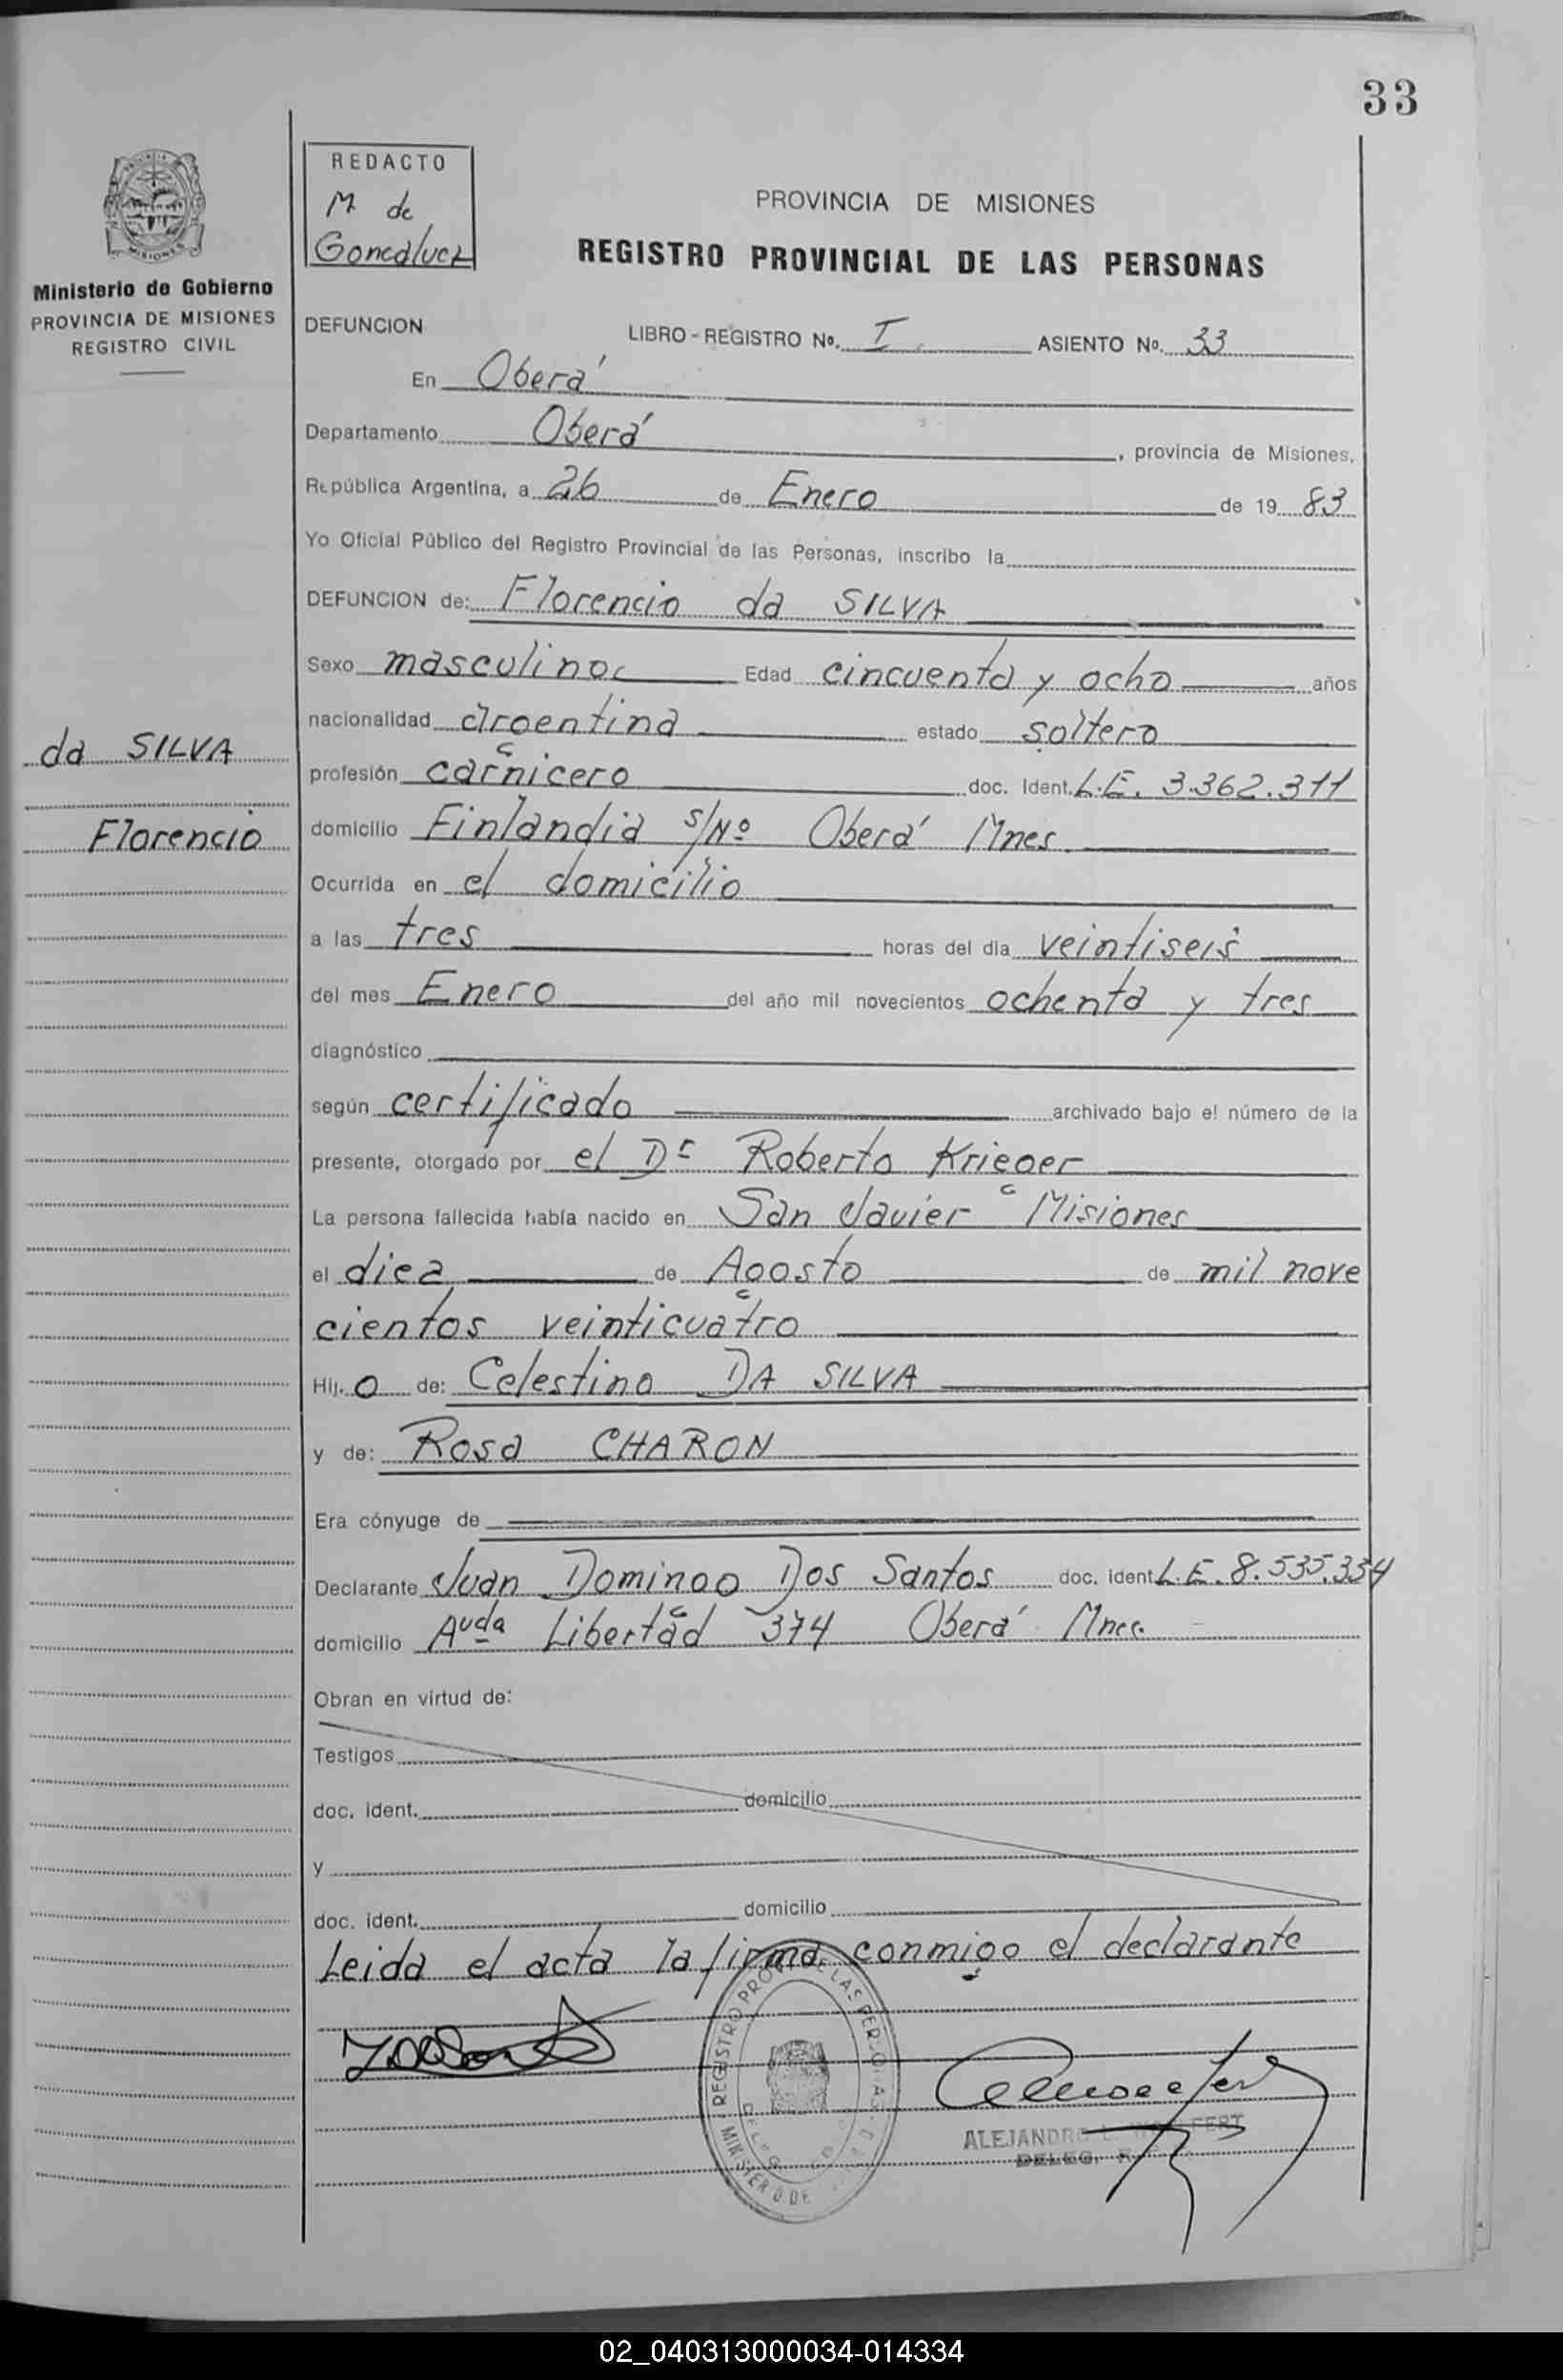 33
REDACTO
M de
Goncalvez
PROVINCIA DE MISIONES
REGISTRO PROVINCIAL DE LAS PERSONAS
Ministerio de Gobierno
PROVINCIA DE MISIONES
REGISTRO CIVIL
DEFUNCION LIBRO - REGISTRO Nº. I ASIENTO Nº. 33
En Oberá
Departamento Oberá, provincia de Misiones,
República Argentina, a 26 de Enero de 19 83
Yo Oficial Público del Registro Provincial de las Personas, inscribo la
DEFUNCION de: Florencio da SILVA
Sexo masculino Edad cincuenta y ocho años
nacionalidad argentina estado soltero
da SILVA
profesión carnicero doc. Ident. L.E. 3.362.311
Florencio
domicilio Finlandia S/Nº Oberá Mnes.
Ocurrida en el domicilio
a las tres horas del dia veintiseis
del mes Enero del año mil novecientos ochenta y tres
diagnóstico
según certificado archivado bajo el número de la
presente, otorgado por el Dr Roberto Krieger
La persona fallecida había nacido en San Javier Misiones
el diez de Agosto de mil nove
cientos veinticuatro
Hij. o de: Celestino DA SILVA
y de: Rosa CHARON
Era cónyuge de
Declarante Juan Domingo Dos Santos doc. ident. L.E. 8.535.334
domicilio Avda Libertad 374 Oberá Mnes.
Obran en virtud de:
Testigos
doc. ident. domicilio
y
doc. ident. domicilio
Leida el acta la firma conmigo el declarante
REGISTRO PROV. DE LAS PERSONAS
MINISTERIO DE
ALEJANDRO L.
DELEG.
02_040313000034-014334